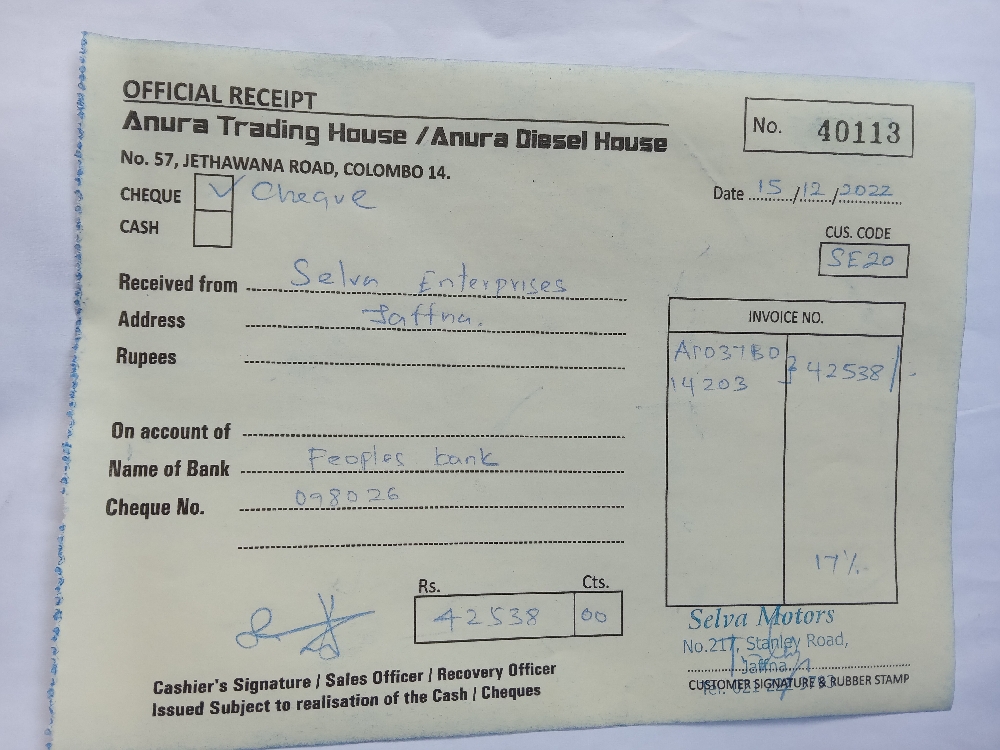 OFFICIAL RECEIPT
Anura Trading House / Anura Diesel House
No. 57, JETHAWANA ROAD, COLOMBO 14.
No. 40113
CHEQUE ✓ Cheque
CASH
Date 15/12/2022
CUS. CODE
SE20
Received from Selva Enterprises
Address Jaffna.
Rupees
On account of
Name of Bank Peoples bank
Cheque No. 098026
INVOICE NO.
14203
42538/-
17%
Rs. Cts.
42538 00
Cashier's Signature / Sales Officer / Recovery Officer
Issued Subject to realisation of the Cash / Cheques
Selva Motors
No.217, Stanley Road,
Jaffna.
CUSTOMER SIGNATURE & RUBBER STAMP